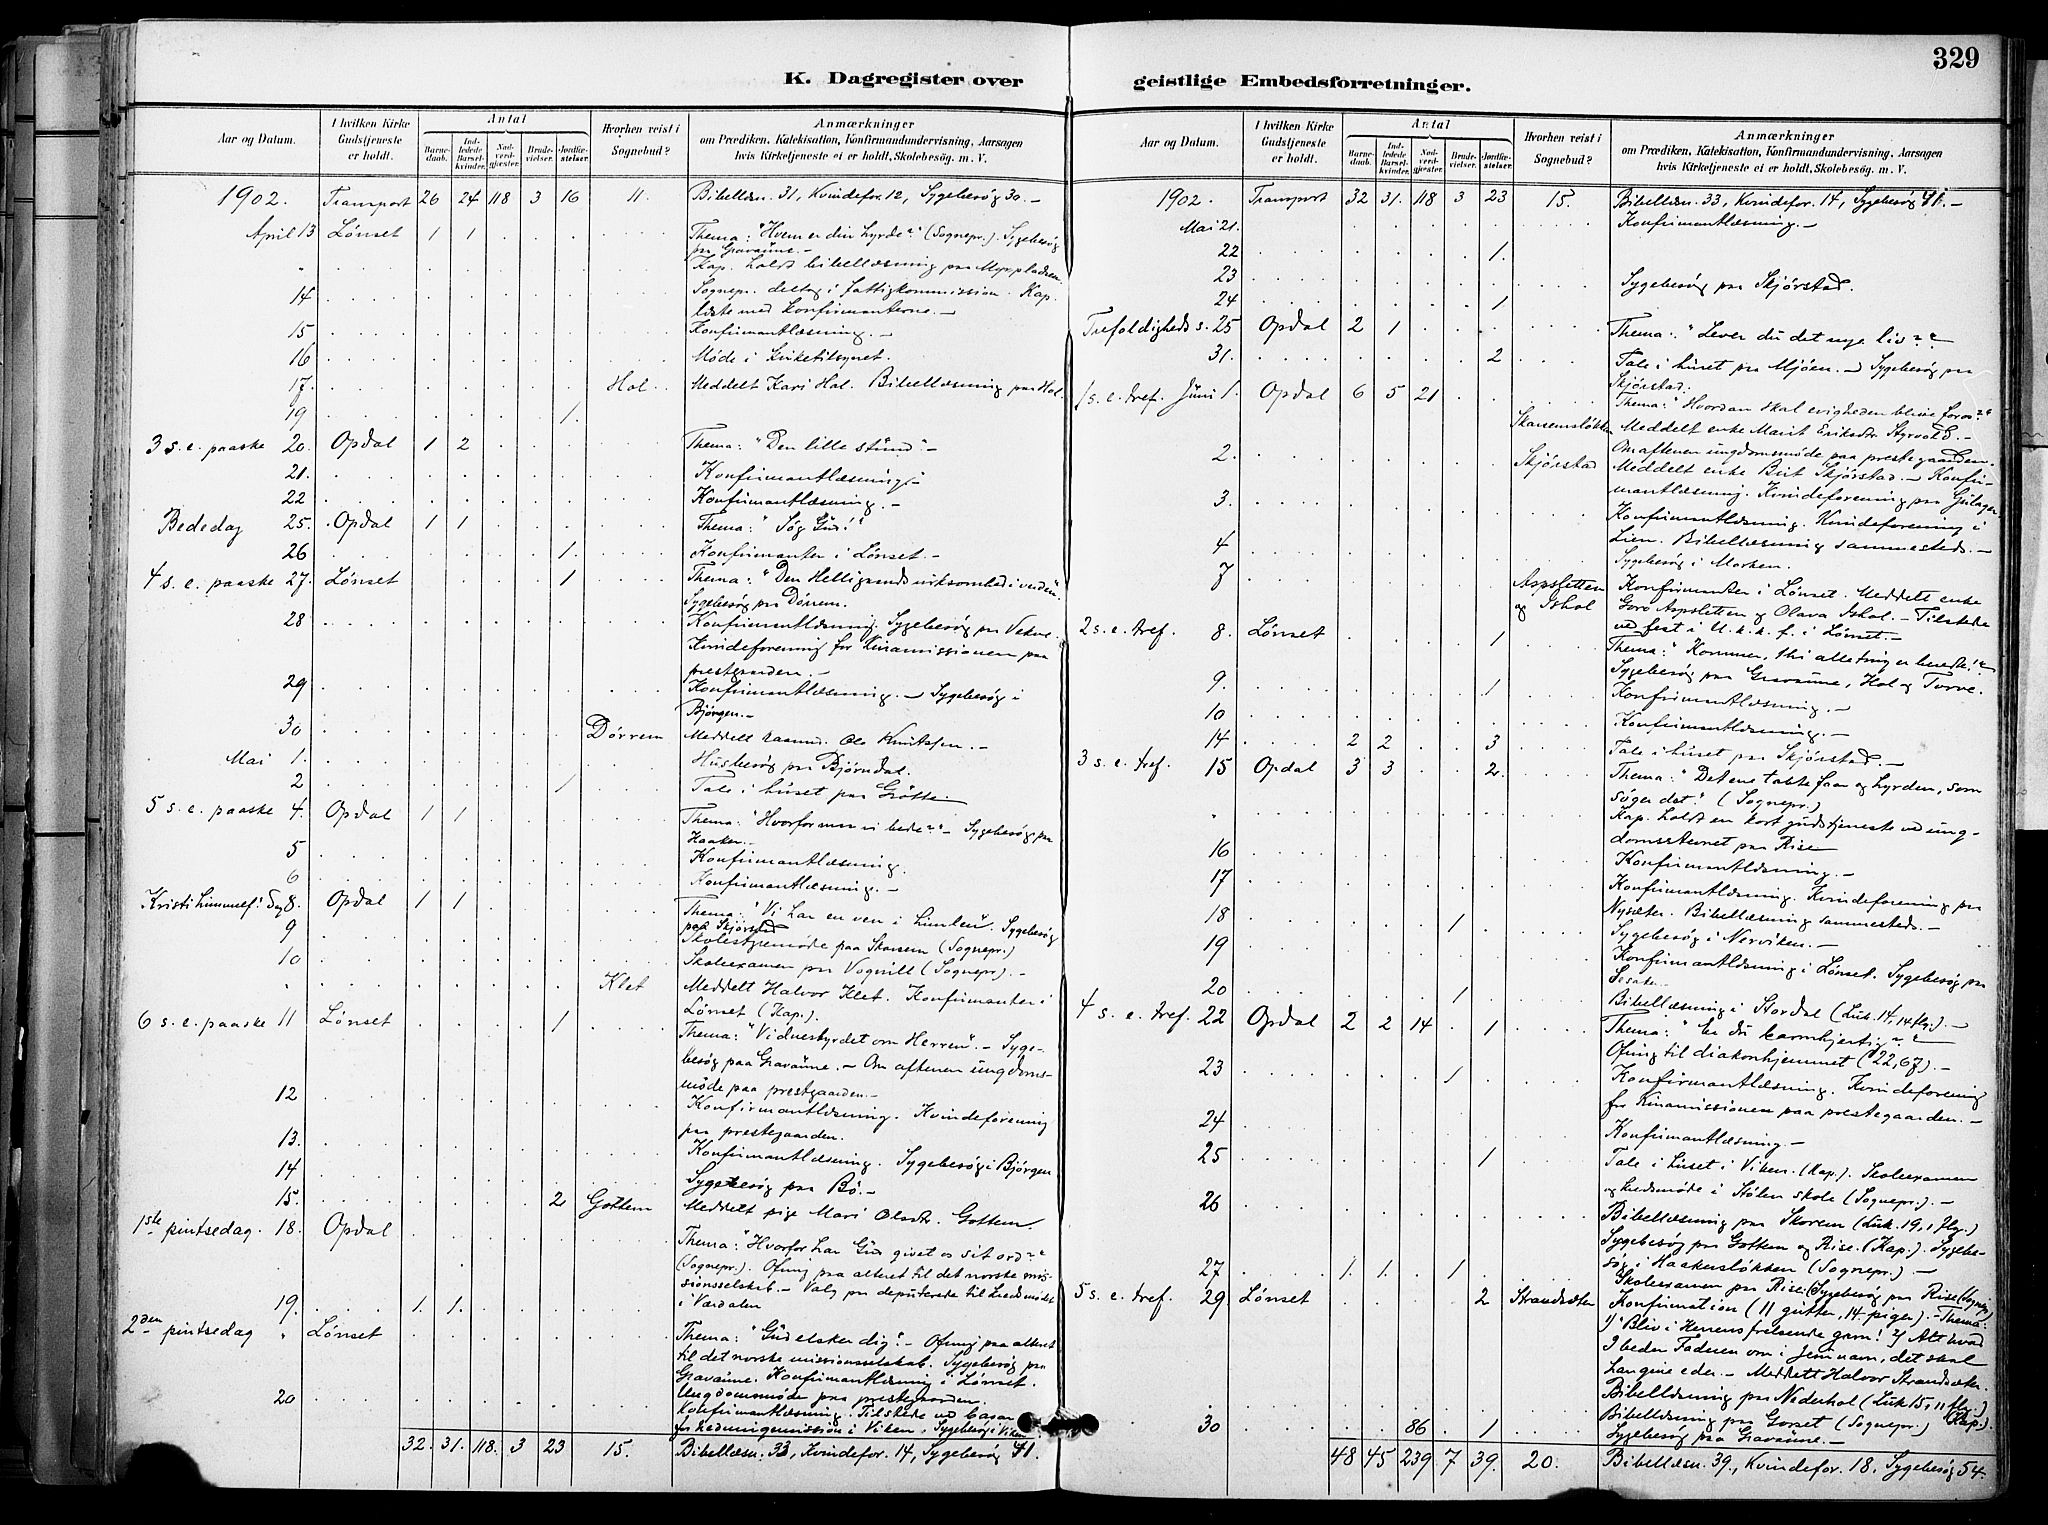 329
K. Dagregister over geistlige Embedsforretninger.
Aar og Datum. I hvilken Kirke Gudstjeneste er holdt. Antal Barnedaab. Indledede Barselkvinder. Nadverdgjester. Brudevielser. Jordfæstelser. Hvorhen reist i Sognebud? Anmærkninger
om Prædiken, Katekisation, Konfirmandundervisning, Aarsagen
hvis Kirketjeneste ei er holdt, Skolebesøg. m. V.
1902. Transport 26 24 118 3 16 11. Bibellæsn. 31, Kvindefor. 12, Sygebesøg 30. -
April 13 Lønset 1 1 Thema: "Hvem er din hyrde?" (Sognepr.). Sygebesøg
paa Gravaune. -
" Kap. holdt bibellæsning paa Myrpladsen.
14 Sognepr. deltog i fattigkommission. Kap.
læste med konfirmanterne. -
15 Konfirmantlæsning. -
16 Møde i kirketilsynet.
17. Hol. Meddelt Kari Hol. Bibellæsning paa Hol.
19 1.
3 s. e. paaske 20. Opdal 1 2 Thema: "Den lille stund". -
21. Konfirmantlæsning. -
22 Konfirmantlæsning. -
Bededag 25. Opdal 1 1 Thema: "Søg Gud!"
26 1. Konfirmanter i Lønset. -
4 s. e. paaske 27. Lønset 1 Thema: "Den Helligaands virksomhed i verden".
Sygebesøg paa Dørrem.
28 Konfirmantlæsning. Sygebesøg paa Vekve.
Kvindeforening for Kinamissionen paa
prestgaarden. -
29 Konfirmantlæsning. - Sygebesøg i
Bjørgen. -
30 Dørrem Meddelt Ole Knutssen. -
Mai 1. Husbesøg paa Bjørndal.
2 1 Tale i huset paa Grøtte.
5 s. e. paaske 4. Opdal 1 1 Thema: "Hvorfor maa vi bede?" - Sygebesøg paa
Haaker. -
5 Konfirmantlæsning.
6 Konfirmantlæsning. -
Kristi himmelf. dag 8. Opdal 1 1 Thema: "Vi har en ven i himlen". Sygebesøg
paa Skjørstad
9 Skolestyremøde paa Skansen (Sognepr.)
10 Skoleexamen paa Vognill (Sognepr.). -
" Klet Meddelt Halvor Klet. Konfirmanter i
Lønset (Kap.).
6 s. e. paaske 11 Lønset 1 Thema: "Vidnesbyrdet om Herren". - Sygebesøg
paa Gravaune. - Om aftenen ungdomsmøde
paa prestgaarden. -
12 Konfirmantlæsning. Kvindeforening
paa prestegaarden.
13. Konfirmantlæsning. Sygebesøg i Bjørgen
14 Sygebesøg paa Bö. -
15. 2 Gottem Meddelt pige Mari Olsdr. Gottem
1ste pintsedag. 18. Opdal Thema: "Hvorfor har Gud givet os sit ord?"
(Sognepr.). Ofring paa alteret til det norske missionsselskab.
- Valg paa deputerede til kredsmødet
i Værdalen
19. 1. 1.
2den pintsedag " Lønset Thema: "Gud elsker dig". - Ofring paa alteret
til det norske missionsselskab. Sygebesøg paa
Gravaune. Konfirmantlæsning i Lønset.
Ungdomsmøde paa prestegaarden.
20 Konfirmantlæsning. Tilstede ved basar
for hedningemissionen i Viken. Sygebesøg i Viken
32. 31. 118. 3 23 15. Bibellæsn. 33, Kvindefor. 14, Sygebesøg 41.
Aar og Datum. I hvilken Kirke Gudstjeneste er holdt. Antal Barnedaab. Indledede Barselkvinder. Nadverdgjester. Brudevielser. Jordfæstelser. Hvorhen reist i Sognebud? Anmærkninger
om Prædiken, Katekisation, Konfirmandundervisning, Aarsagen
hvis Kirketjeneste ei er holdt, Skolebesøg. m. V.
1902. Transport 32 31. 118 3 23 15. Bibellæsn. 33, Kvindefor. 14, Sygebesøg 41. -
Mai 21. Konfirmantlæsning. -
22 1.
23 Sygebesøg paa Skjørstad.
24 1
Trefoldigheds s. 25 Opdal 2 1 Thema: "Lever du det nye liv?"
31. 2 Tale i huset paa Mjöen. - Sygebesøg paa
Skjørstad.
1 s. e. tref. Juni 1. Opdal 6 5 21 Thema: "Hvordan skal evigheden blive for os?"
Skaremsløkken Meddelt enke Marit Eriksdr. Styrvold. -
Om aftenen ungdomsmøde paa prestegaarden.
2. Skjørstad Meddelt enke Brit Skjørstad. - Konfirmantlæsning.
Kvindeforening paa Gulager.
3. Konfirmantlæsning. Kvindeforening i
Lien. Bibellæsning sammesteds. -
4 Sygebesøg i Morken.
7 Aspsletten og Ishol Konfirmanter i Lønset. Meddelt enke
Goro Aspsletten og Olava Ishol. - Tilstede
ved fest i U.k.k.f. i Lønset. -
2 s. e. tref. 8. Lønset 1 Thema: "Kommer, thi alleting er beredt!"
Sygebesøg paa Gravaune, Hol og Torve.
9. 1 Konfirmantlæsning. -
10 Konfirmantlæsning. -
14 2 2 3 Tale i huset paa Skjørstad. -
3 s. e. tref. 15 Opdal 3 3 2. Thema: "Det ene tabte faar og hyrden, som
søger det." (Sognepr.)
" Kap. holdt en kort gudstjeneste ved ungdomsstevnet
paa Rise
16 Konfirmantlæsning. -
17 Konfirmantlæsning. Kvindeforening paa
Nysæter. Bibellæsning sammesteds. -
18 1 Sygebesøg i Nerviken. -
19 Konfirmantlæsning i Lønset. Sygebesøg paa
20 1 Bibellæsning i Stordal (Luk. 14, 14 flg.). -
4 s. e. tref. 22 Opdal 2 2 14 1 Thema: "Er du barmhjertig?"
Ofring til diakonhjemmet (22,67). -
23 1 Konfirmantlæsning. Kvindeforening
for Kinamissionen paa prestegaarden. -
24 Konfirmantlæsning. -
25 1 Tale i huset i Viken. (Kap.). Skoleexamen
og kredsmøde i Stølen skole (Sognepr.). -
26 Bibellæsning paa Skorem (Luk. 19, 1 flg.)
Sygebesøg paa Gottem og Rise. (Kap.). Sygebesøg
i Haakersløkken (Sognepr.). -
27 1. 1. 1. Skoleexamen paa Rise. (Sygebesøg paa Rise (Sognepr.)
5 s. e. tref. 29. Lønset 2 Strandsæter Konfirmation (11 gutter, 14 piger). - Thema:
1) "Bliv i Herrens frelsende garn! 2) Alt hvad
I beder Faderen om i Jesu navn, det skal
han give eder. - Meddelt Halvor Strandsæter.
Bibellæsning paa Nederhol (Luk 15, 11 flg.)
(Kap.).
30 86 1 Bibellæsning paa Gorset (Sognepr.)
Sygebesøg paa Gravaune. -
48 45 239 7 39. 20. Bibellæsn. 39., Kvindefor. 18, Sygebesøg 54.